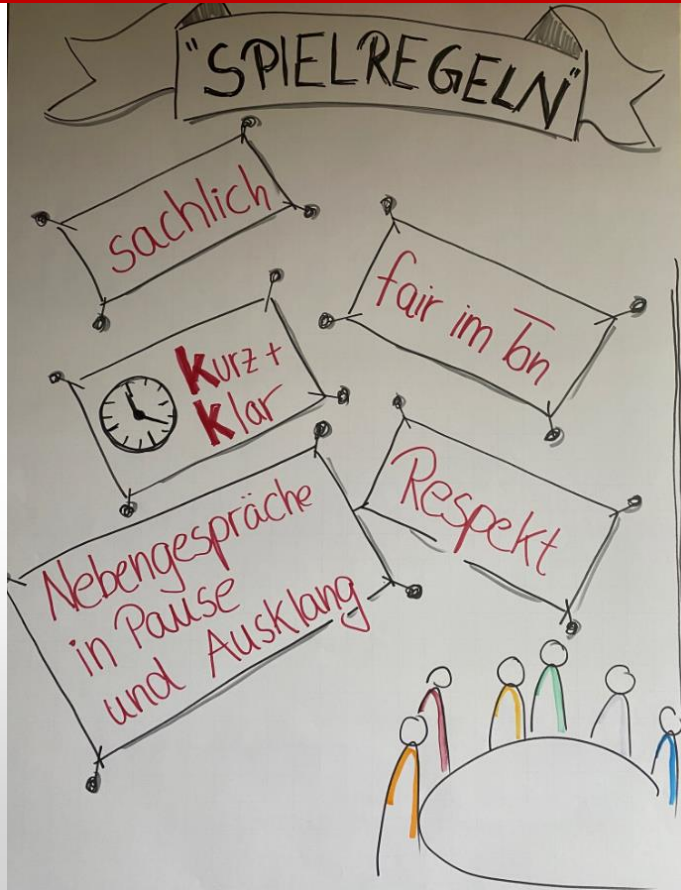 "SPIELREGELN"
sachlich
fair im Ton
Kurz +
Klar
Respekt
Nebengespräche
in Pause
und Ausklang